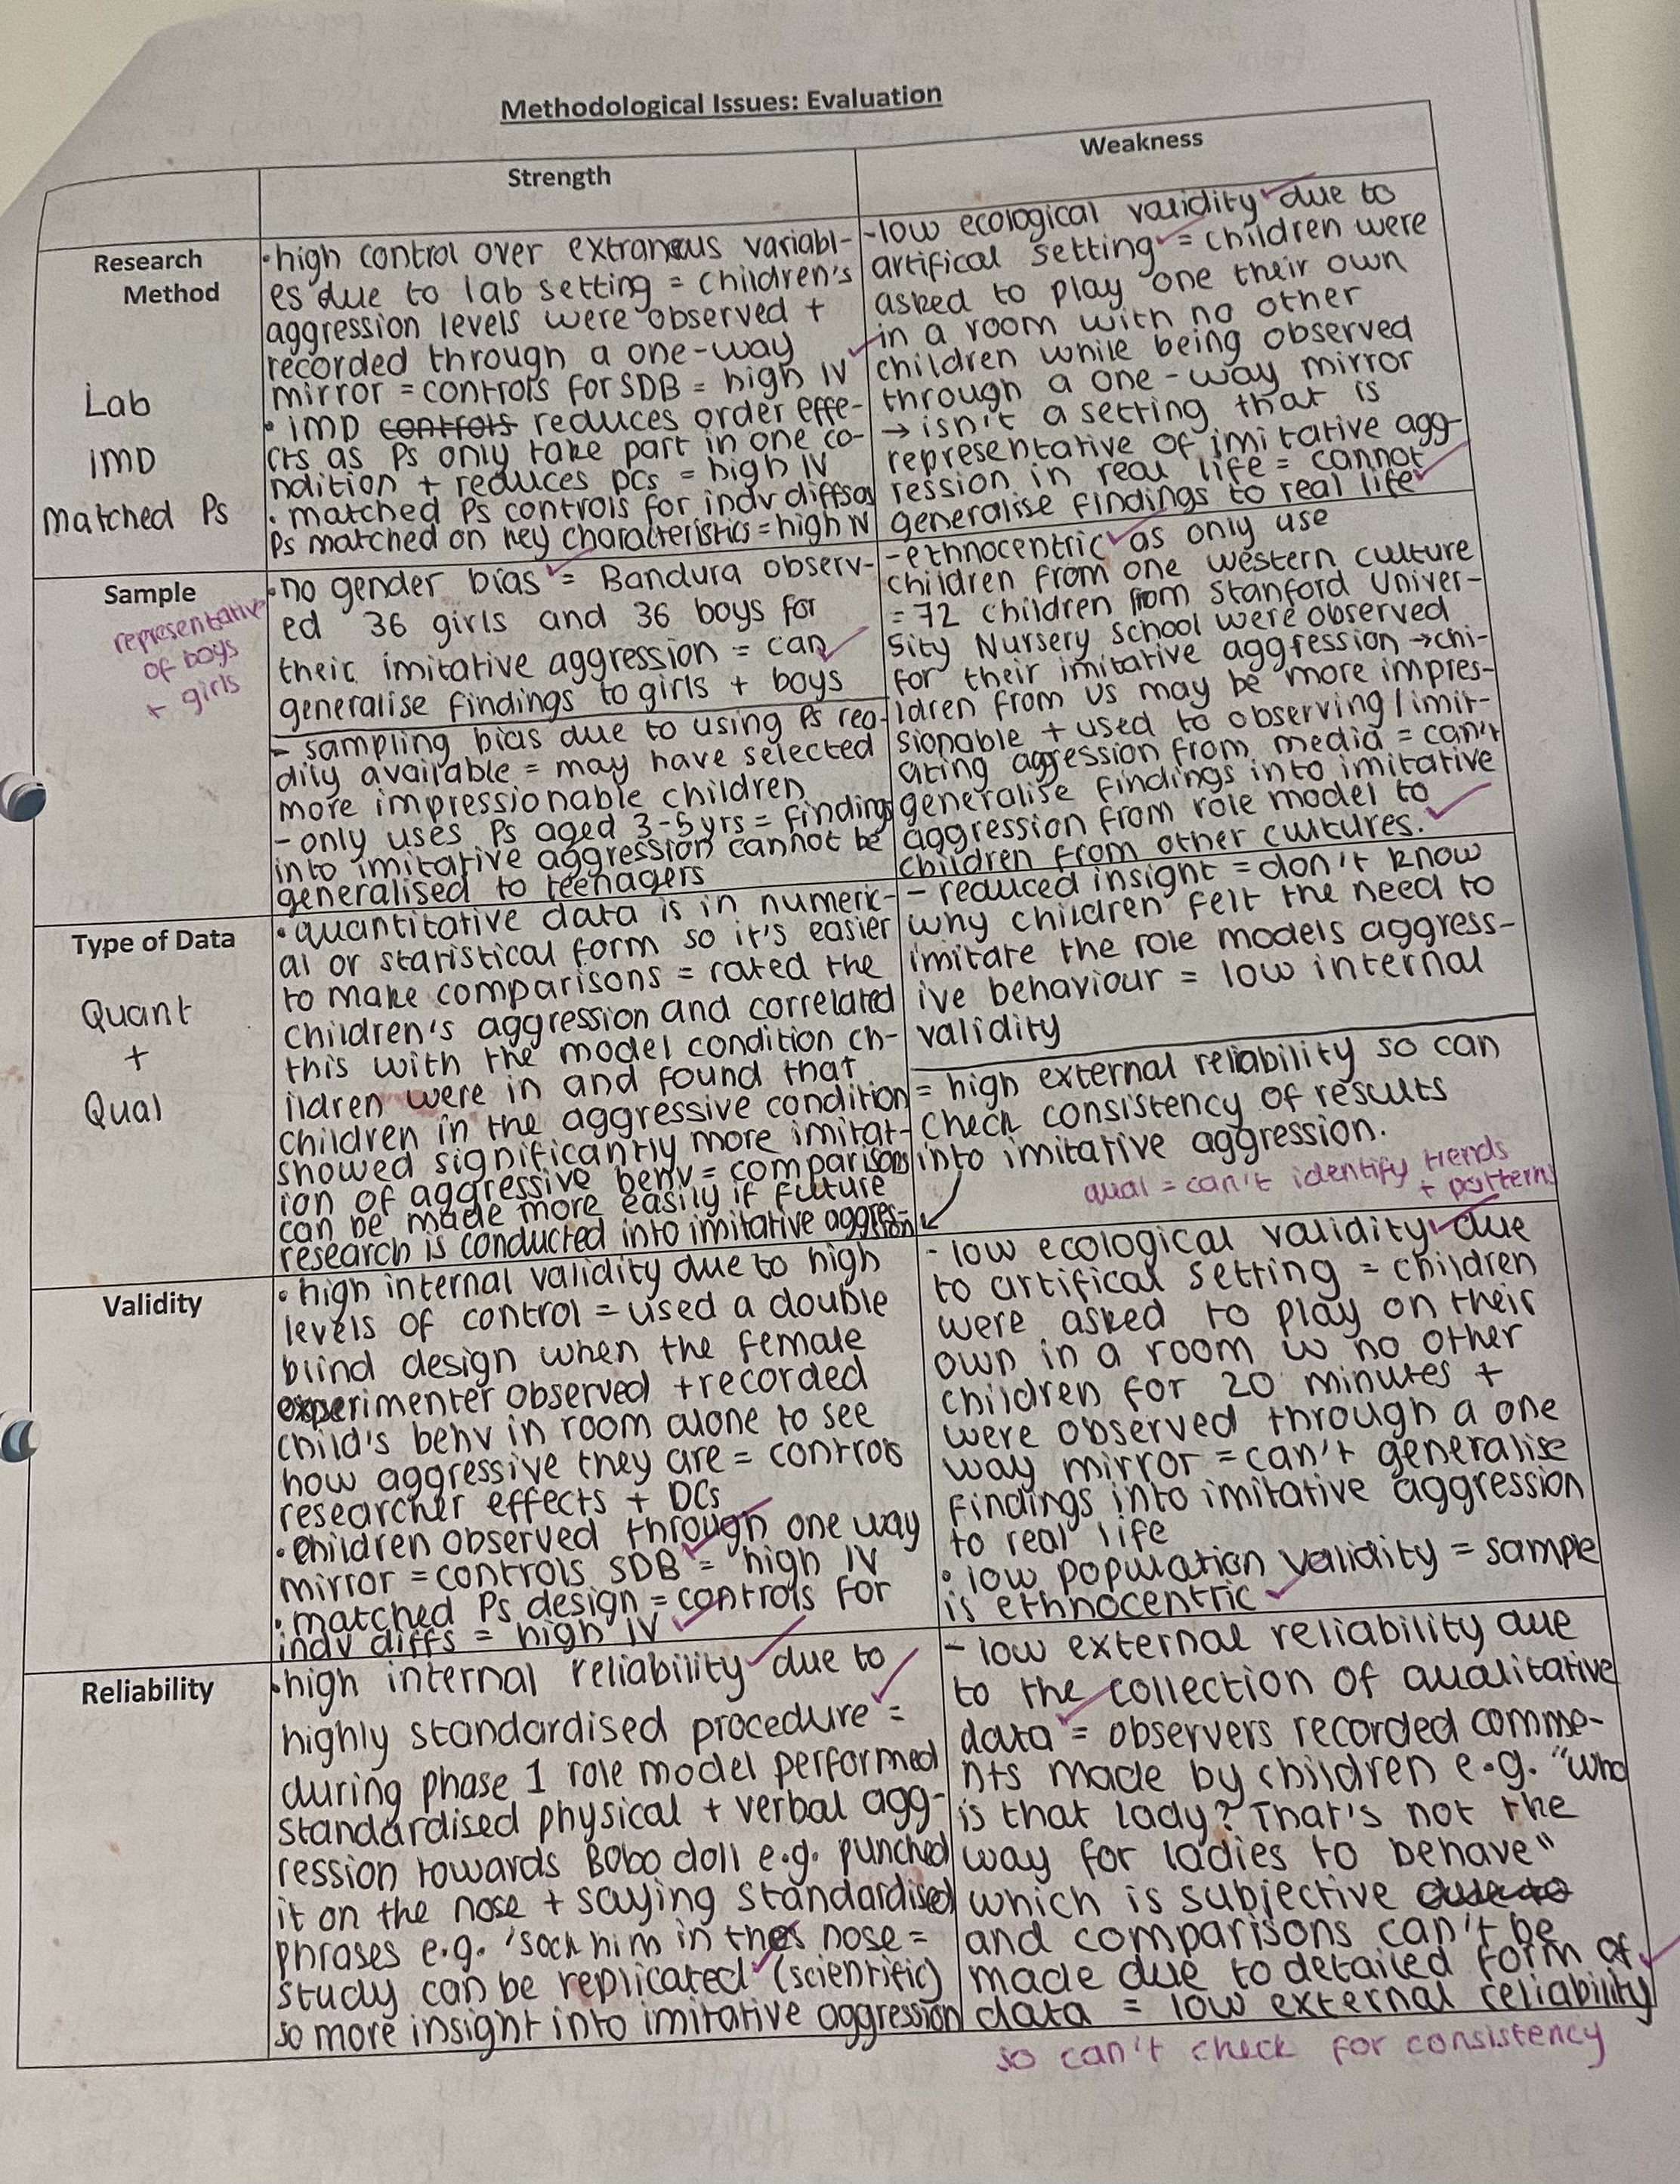 Methodological Issues: Evaluation
Strength
Weakness
Research
Method
Lab
IMD
Matched Ps
•high control over extraneous variabl-
es due to lab setting = children's
aggression levels were observed +
recorded through a one-way
mirror = controls for SDB = high IV
• IMD controls reduces order effe-
cts as Ps only take part in one co-
ndition + reduces DCs = high IV
• matched Ps controls for indv diffs as
Ps matched on key characteristics = high IV
-low ecological validity due to
artifical setting = children were
asked to play one their own
in a room with no other
children while being observed
through a one-way mirror
→ isn't a setting that is
representative of imitative agg-
ression in real life = cannot
generalise findings to real life
Sample
representative
of boys
+ girls
•no gender bias = Bandura observ-
ed 36 girls and 36 boys for
their imitative aggression = can
generalise findings to girls + boys
- sampling bias due to using Ps rea-
dily available = may have selected
more impressionable children
- only uses Ps aged 3-5yrs = findings
into imitative aggression cannot be
generalised to teenagers
-ethnocentric as only use
children from one western culture
= 72 children from Stanford Univer-
sity Nursery School were observed
for their imitative aggression → chi-
ldren from US may be more impres-
sionable + used to observing/imit-
ating aggression from media = can't
generalise findings into imitative
aggression from role model to
children from other cultures.
Type of Data
Quant
+
Qual
•quantitative data is in numeric-
al or statistical form so it's easier
to make comparisons = rated the
children's aggression and correlated
this with the model condition ch-
ildren were in and found that
children in the aggressive condition
showed significantly more imitat-
ion of aggressive behv = comparisons
can be made more easily if future
research is conducted into imitative aggres-
- reduced insight = don't know
why children felt the need to
imitate the role models aggress-
ive behaviour = low internal
validity
= high external reliability so can
check consistency of results
into imitative aggression.
qual = can't identify trends
+ patterns
Validity
• high internal validity due to high
levels of control = used a double
blind design when the female
experimenter observed + recorded
child's behv in room alone to see
how aggressive they are = controls
researcher effects + DCs
• children observed through one way
mirror = controls SDB = high IV
• matched Ps design = controls for
indv diffs = high IV
- low ecological validity due
to artifical setting = children
were asked to play on their
own in a room w no other
children for 20 minutes +
were observed through a one
way mirror = can't generalise
findings into imitative aggression
to real life
• low population validity = sample
is ethnocentric
Reliability
•high internal reliability due to
highly standardised procedure =
during phase 1 role model performed
standardised physical + verbal agg-
ression towards Bobo doll e.g. punched
it on the nose + saying standardised
phrases e.g. 'sock him in the nose =
study can be replicated (scientific)
so more insight into imitative aggression
- low external reliability due
to the collection of qualitative
data = observers recorded comme-
nts made by children e.g. "who
is that lady? That's not the
way for ladies to behave"
which is subjective due to
and comparisons can't be
made due to detailed form of
data = low external reliability
so can't check for consistency